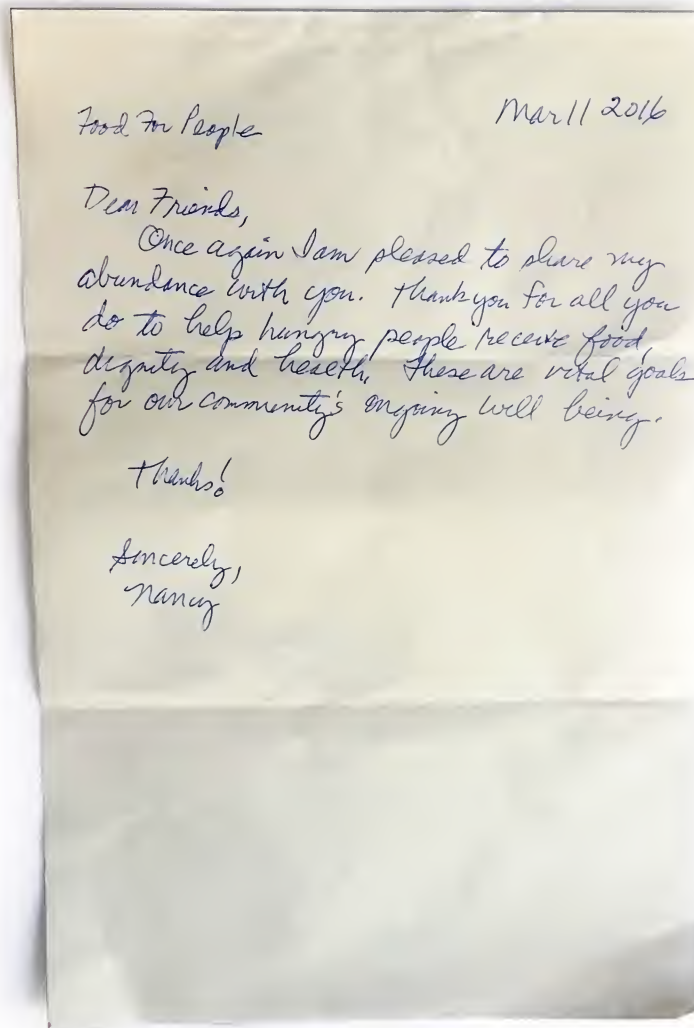 Food For People
Mar 11 2016
Dear Friends,
Once again I am pleased to share my
abundance with you. Thank you for all you
do to help hungry people receive food,
dignity and health. These are vital goals
for our community's ongoing well being.
Thanks!
Sincerely,
Nancy